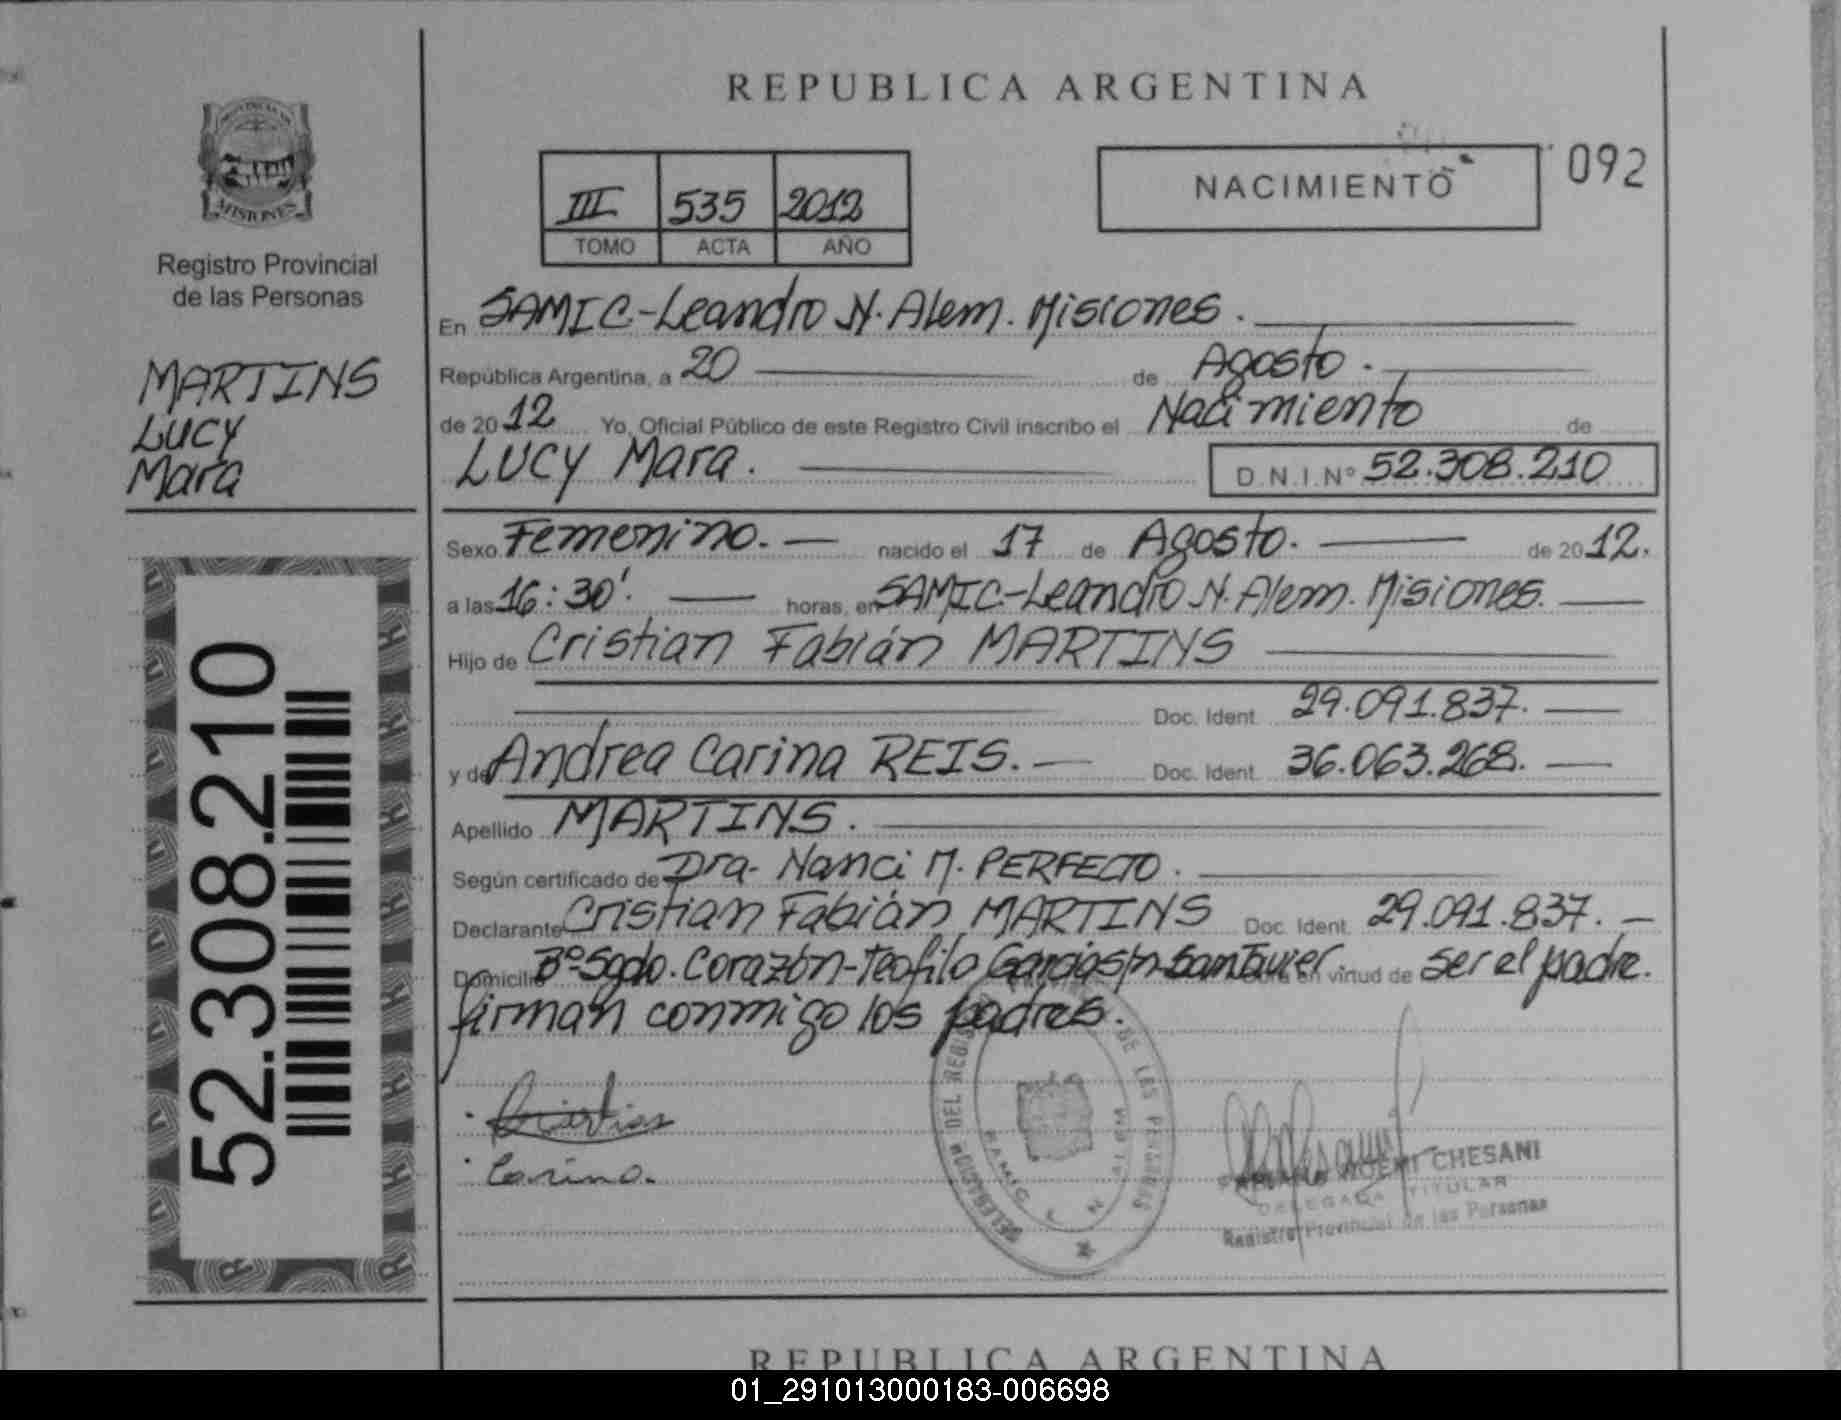 REPUBLICA ARGENTINA
MISIONES
Registro Provincial
de las Personas
MARTINS
LUCY
Mara
52.308.210
III 535 2012
TOMO ACTA AÑO
NACIMIENTO 092
En SAMIC-Leandro N. Alem. Misiones.
República Argentina, a 20 de Agosto.
de 2012 Yo, Oficial Público de este Registro Civil inscribo el Nacimiento de
LUCY Mara. D.N.I.Nº 52.308.210
Sexo Femenino. nacido el 17 de Agosto. de 2012.
a las 16:30'. horas, en SAMIC-Leandro N. Alem. Misiones.
Hijo de Cristian Fabián MARTINS
Doc. Ident 29.091.837.
y de Andrea Carina REIS. Doc. Ident 36.063.268.
Apellido MARTINS.
Según certificado de Dra. Nanci M. PERFECTO.
Declarante Cristian Fabián MARTINS Doc. Ident. 29.091.837.
Domicilio Bº Sgdo. Corazón-Teofilo Garcias/n-San Javier en virtud de Ser el padre.
firman conmigo los padres.
Cristian
Carina.
DELEGACION DEL REGISTRO DE LAS PERSONAS
SAMIC
NOEMI CHESANI
DELEGADA TITULAR
Registro Provincial de las Personas
REPUBLICA ARGENTINA
01_291013000183-006698